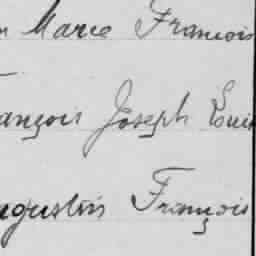 Marie François
ançois Joseph Loui
ugustin François